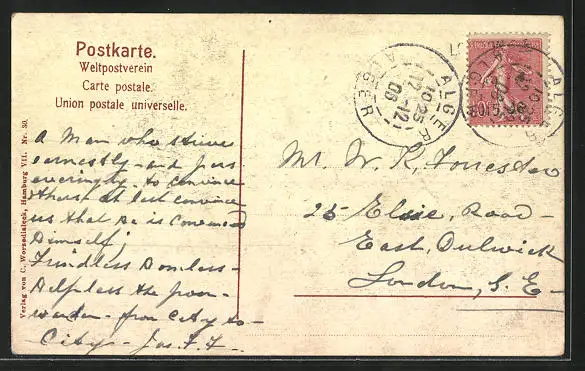 Postkarte.
Weltpostverein
Carte postale.
Union postale universelle.
ALGER
10-25
12-12
06
ALGER
a Man who strives
earnestly - and pers
everingly - to convince
others at last convince
us that he is convinced
himself;
Friendless Homeless -
Helpless the poor
wander - from City to -
City - Jas. F. F.
Mr W. R. Forrester
25 Elsie, Road -
East, Dulwick
London, S. E -
Verlag von C. Worzedialeck, Hamburg VII. Nr. 30.